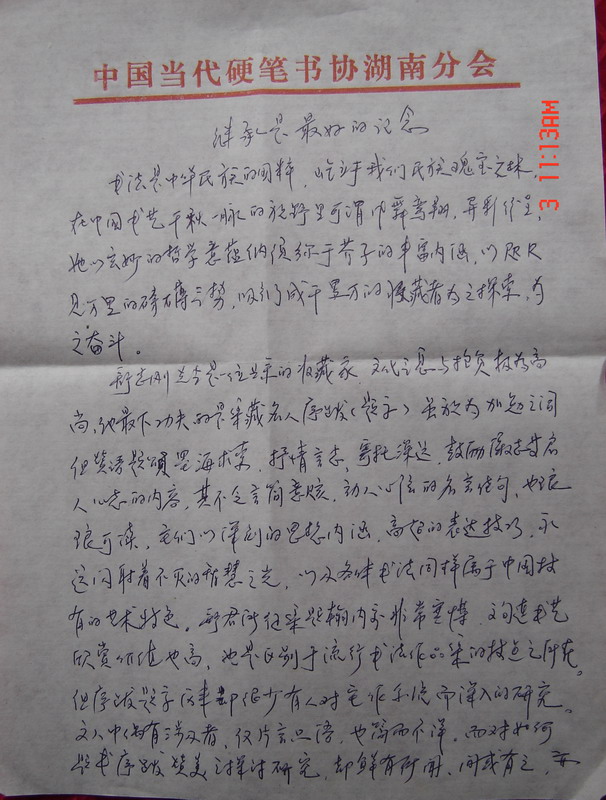 中国当代硬笔书协湖南分会
3 11:13AM
继承是最好的记念
书法是中华民族的国粹，屹立于我们民族瑰宝之林，
在中国书艺千秋一脉的旅野里可谓巾舞鸾翔，异彩纷呈，
她以玄妙的哲学意蕴纳须弥于芥子的丰富内涵，以咫尺
见万里的磅礴之势，吸引了成千累万的收藏者为之探索，为
之奋斗。
先生是一位出名的收藏家，文化之气与抱负极为高
尚，他最下功夫的是集藏名人序跋（题字）虽短为
但赞语题颂墨海求索，抒情言志，寄托深远，鼓励
人心志的内容，其不乏言简意赅，动人心弦的名言佳句，也琅
琅可读，它们以深刻的思想内涵，高超的表达技巧，永
远闪射着不灭的智慧之光，以及各体书法同样属于中国特
有的艺术特色。舒君所征集题翰内容非常丰博，文句连书艺
欣赏价值也高，也是区别于流行书法作品集的特点之所在。
但序跋题字历来却很少有人对它作系统而深入的研究。
文人中偶有涉及者，仅片言只语，也简而不详，而对如何
题书序跋赞美之探讨研究，却鲜有所闻，间或有之，亦